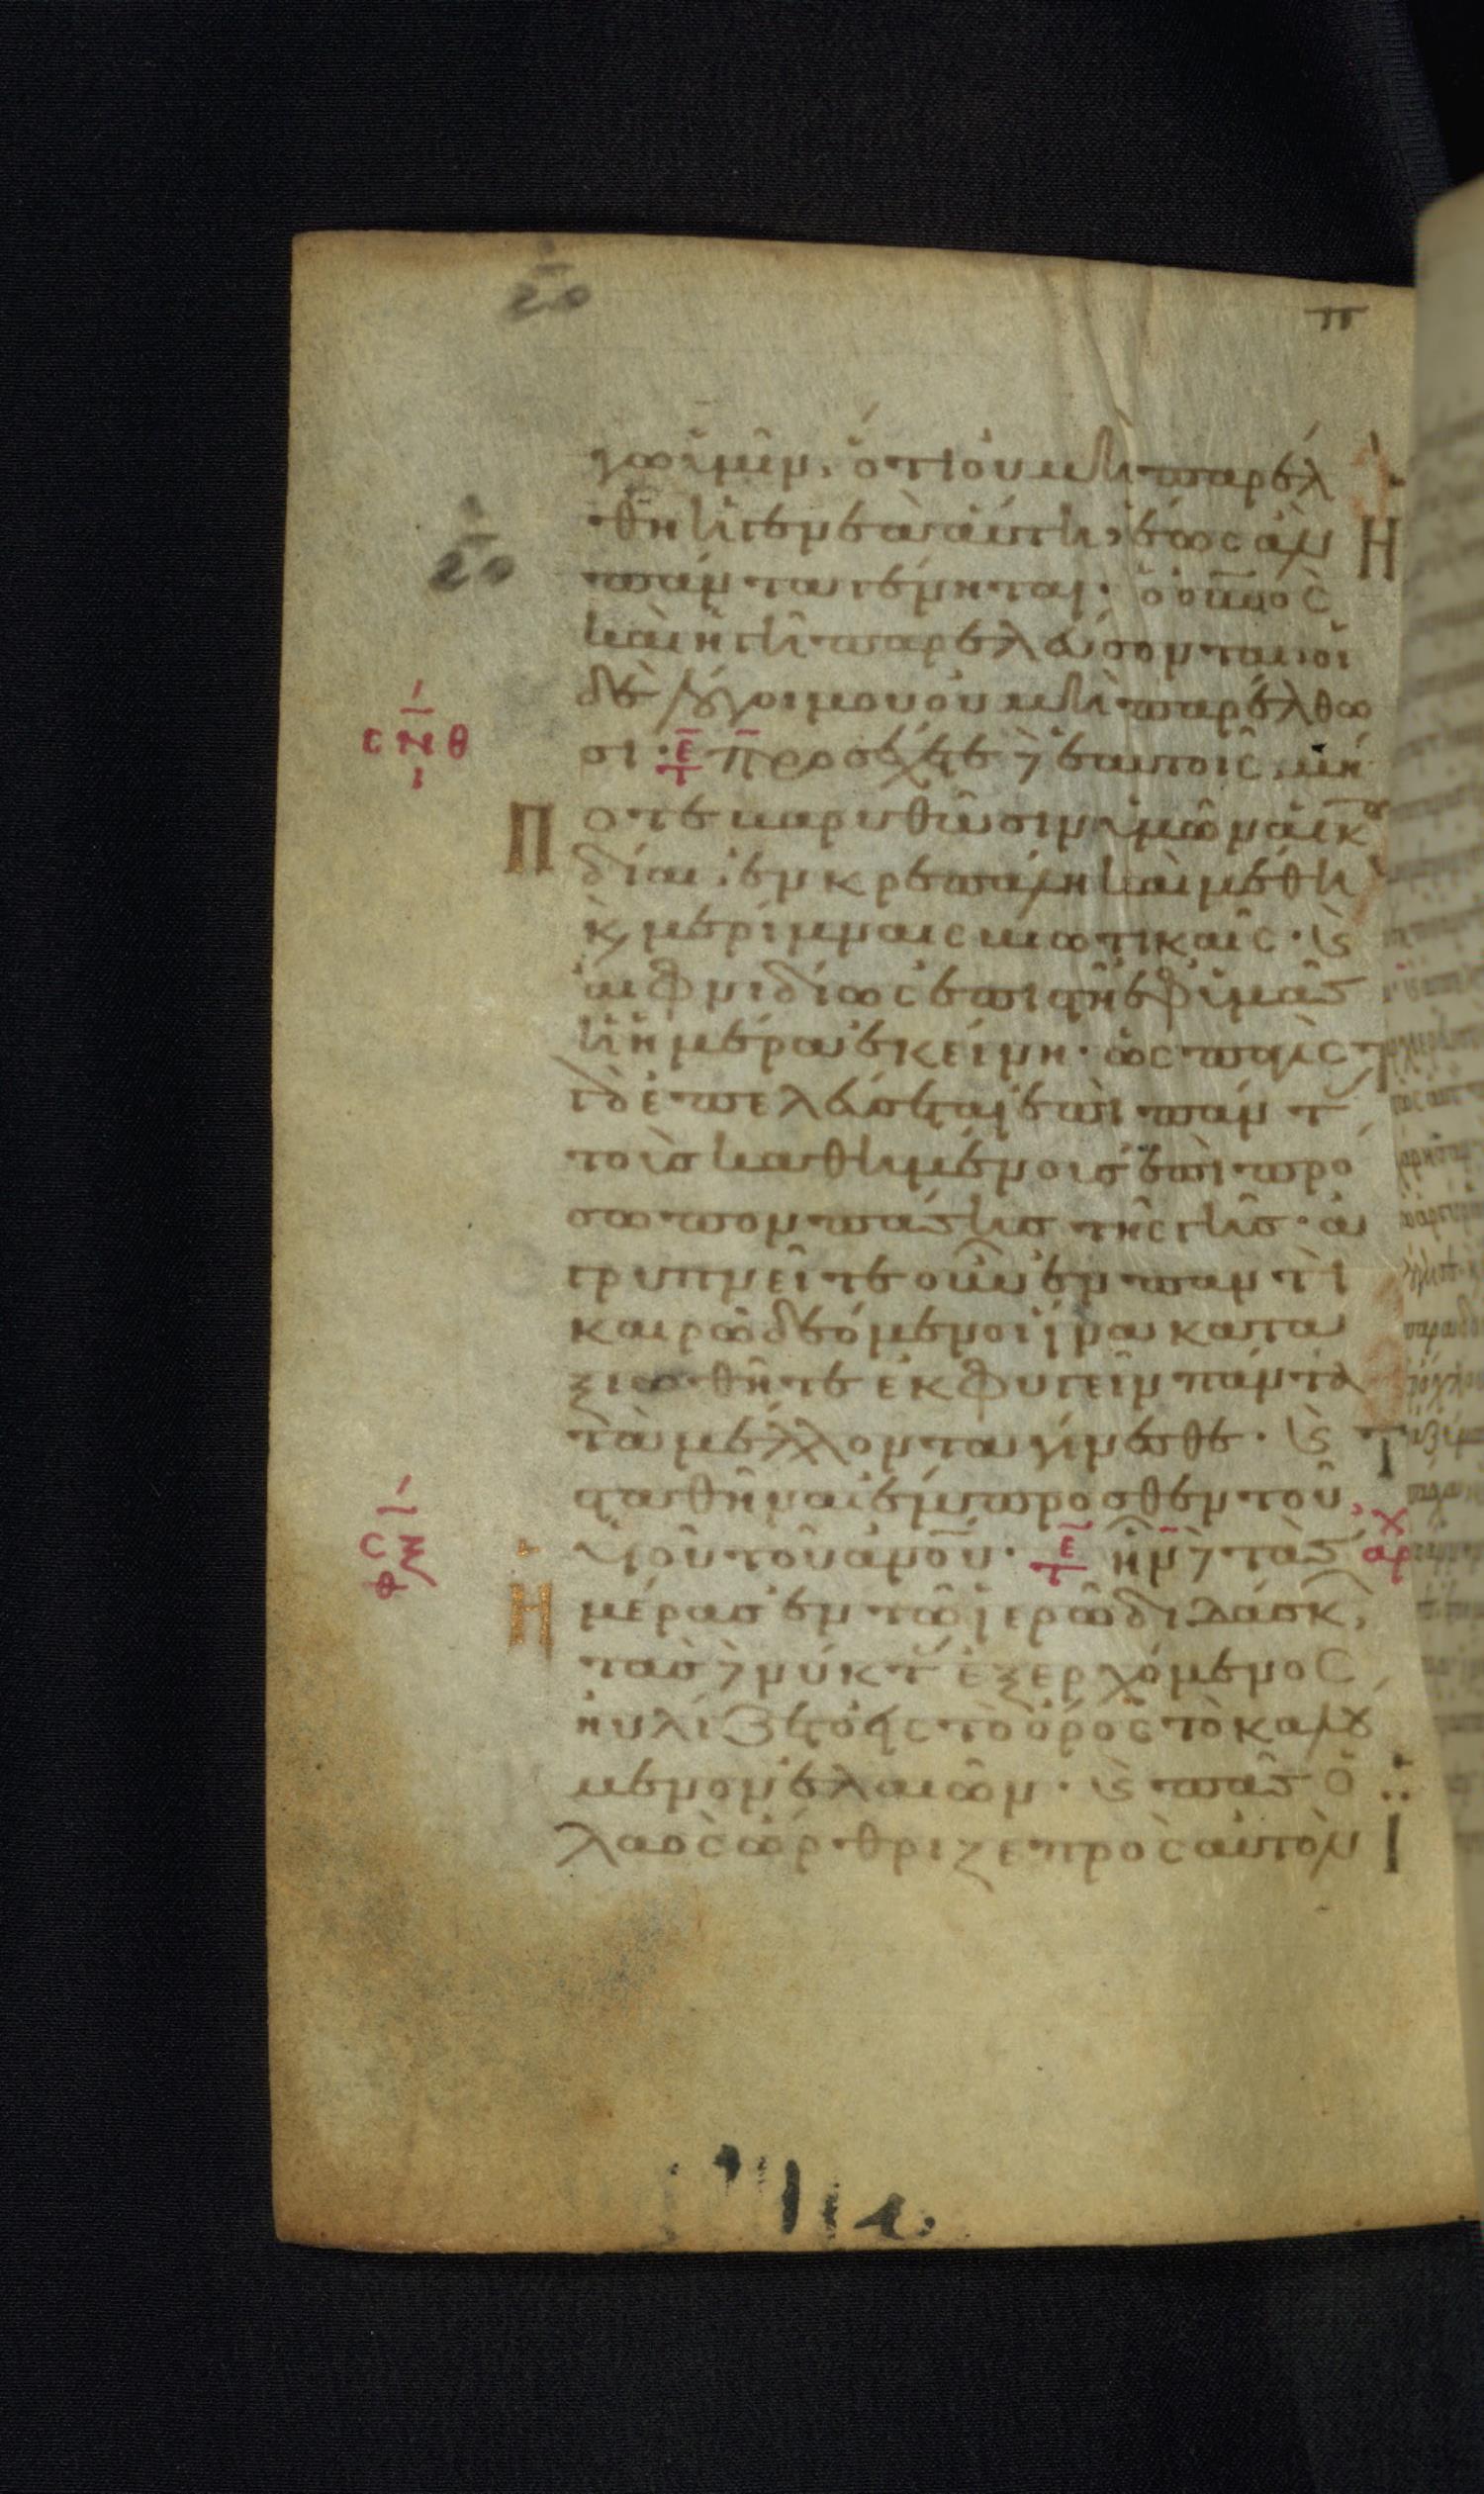 γω ὑμῖν, ὅτι οὐ μὴ παρέλ
θη ἡ γενεὰ αὕτη, ἕως ἂν
πάντα γένηται· ὁ οὐ̅νος
καὶ ἡ γῆ παρελεύσονται, οἱ
δὲ λόγοι μου οὐ μὴ παρέλθω
σι· προσέχετε δὲ ἑαυτοῖς, μή
Ποτε βαρυθῶσιν ὑμῶν αἱ κ
δίαι, ἐν κρεπάλη καὶ μέθη
κ, μερίμναις βιωτικαῖς· κ
αἰφνιδίως ἐπιστῆ ἐφ ὑμᾶς
ἡ ἡμέρα ἐκείνη· ὡς παγὶς γ
ὰρ ἐπελεύσεται ἐπὶ πάντ
τοὺς καθημένους ἐπὶ πρό
σωπον πάσης τῆς γῆς· ἀ
γρυπνεῖτε οὖν ἐν παντὶ
καιρῶ δεόμενοι ἵνα κατα
ξιωθῆτε ἐκφυγεῖν πάντα
τὰ μέλλοντα γίνεσθε· κ
σταθῆναι ἔμπροσθεν τοῦ
υἱοῦ τοῦ ἀνου̅· ἦν δὲ τὰς
Ημέρας ἐν τῶ ἱερῶ διδάσκ,
τὰς δὲ νύκτ ἐξερχόμενος
ηὐλίζετο εἰς τὸ ὄρος τὸ καλού
μενον ἐλαιῶν· κ πᾶς ὁ
λαὸς ὤρθριζε πρὸς αὐτὸν